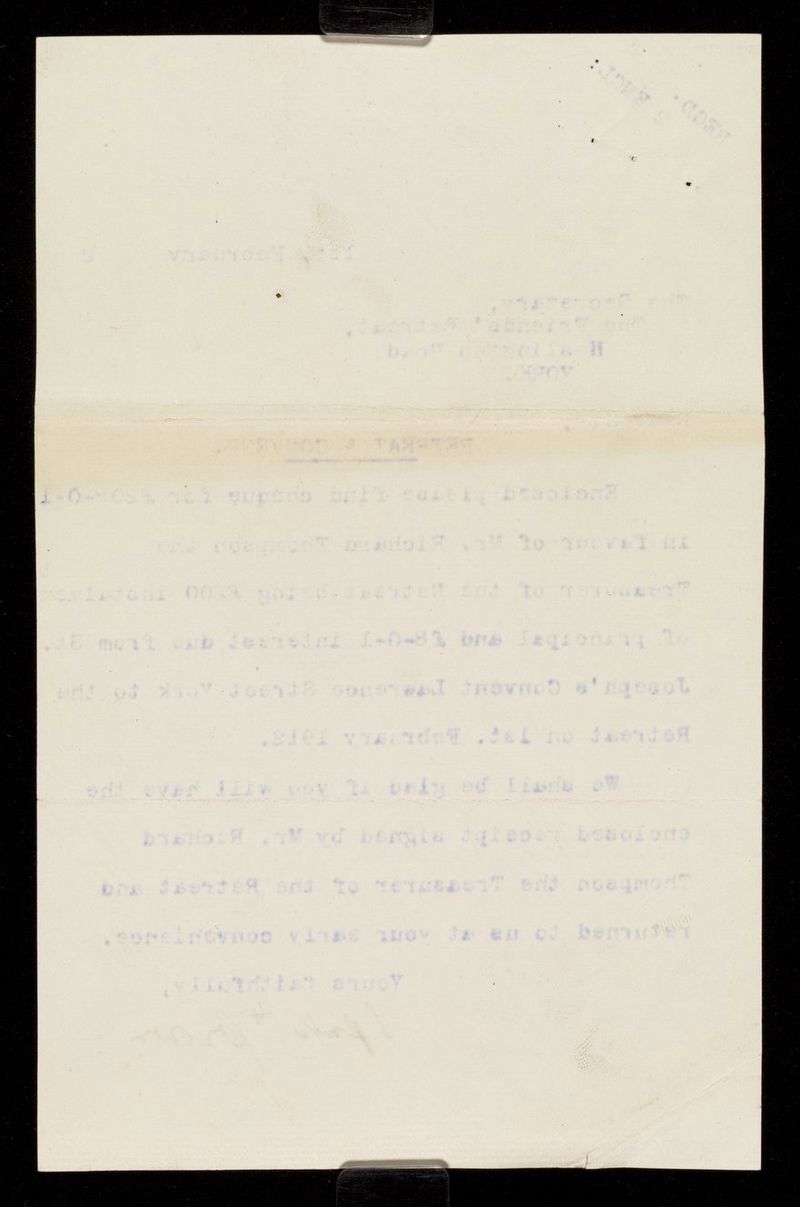 RECD. 2 ENCL.
15th February 2
The Secretary,
The Friends' Retreat,
Heslington Road
YORK.
RETREAT & CONVENT.
Enclosed please find cheque for £208-0-1
in favour of Mr. Richard Thompson the
Treasurer of the Retreat being £200 instalmen
of principal and £8-0-1 interest due from St.
Joseph's Convent Lawrence Street York to the
Retreat on 1st. February 1912.
We shall be glad if you will have the
enclosed receipt signed by Mr. Richard
Thompson the Treasurer of the Retreat and
returned to us at your early convenience.
Yours faithfully,